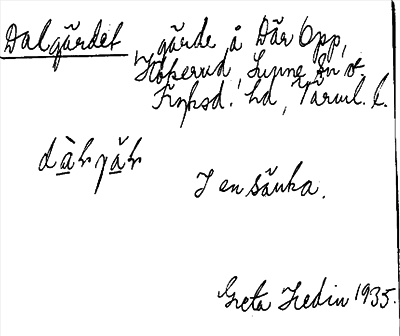 Dalgärdet, gärde å Där Opp,
Höperud, Lysvik sn o.
Fryksd. hd, Värml. l.
I en sänka.
Greta Hedin 1935.